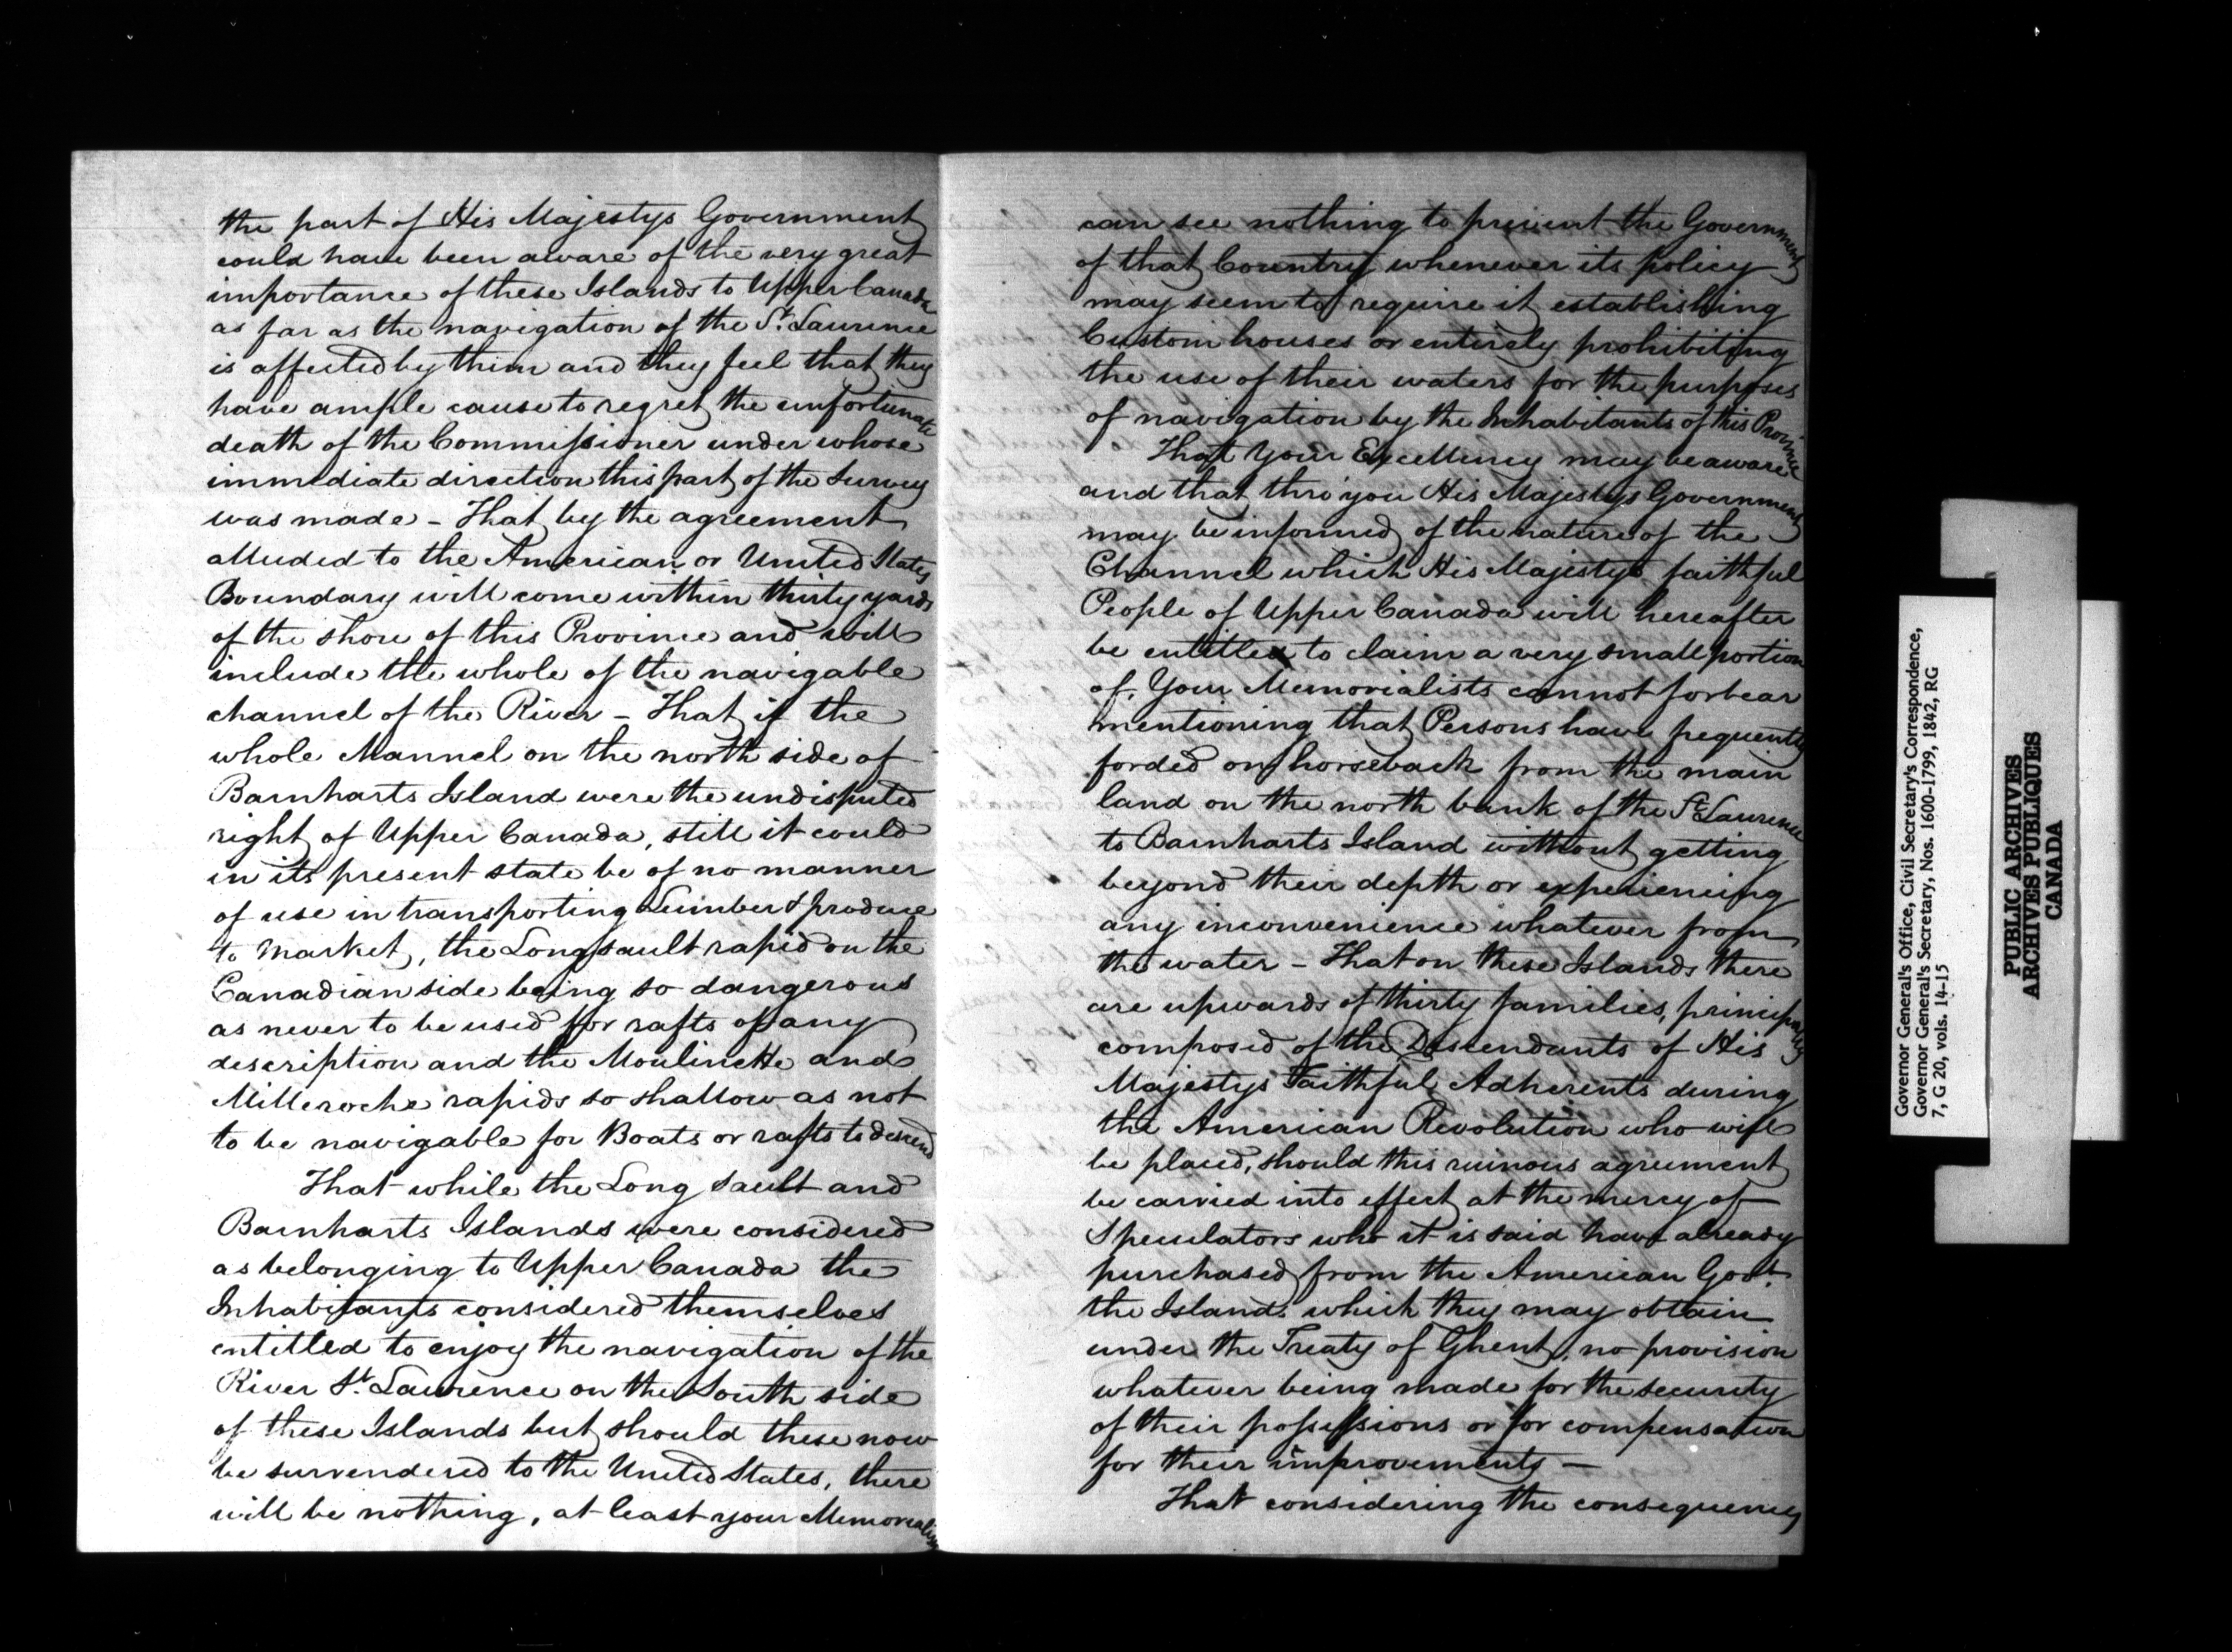 the part of His Majestys Government
could have been aware of the very great
importance of these Islands to Upper Canada
as far as the navigation of the St. Laurence
is affected by them and they feel that they
have ample cause to regret the unfortunate
death of the Commissioner under whose
immediate direction this part of the Survey
was made - That by the agreement
alluded to the American or United States
Boundary will come within thirty yards
of the shore of this Province and will
include the whole of the navigable
channel of the River - That if the
whole Channel on the north side of
Barnharts Island were the undisputed
right of Upper Canada, still it could
in its present state be of no manner
of use in transporting Lumber & produce
to Market, the Long sault rapid on the
Canadian side being so dangerous
as never to be used for rafts of any
description and the Moulinette and
Milleroche rapids so shallow as not
to be navigable for Boats or rafts to descend
That while the Long Sault and
Barnharts Islands were considered
as belonging to Upper Canada the
Inhabitants considered themselves
entitled to enjoy the navigation of the
River St. Laurence on the South side
of these Islands but should these now
be surrendered to the United States, there
will be nothing, at least your Memorialists
can see nothing to prevent the Government
of that Country whenever its policy
may seem to require it establishing
Custom houses or entirely prohibiting
the use of their waters for the purposes
of navigation by the Inhabitants of this Province
That Your Excellency may be aware
and that thro' you His Majestys Government
may be informed of the nature of the
Channel which His Majestys faithful
People of Upper Canada will hereafter
be entitled to claim a very small portion
of. Your Memorialists cannot forbear
mentioning that Persons have frequently
forded on horseback from the main
land on the north bank of the St. Laurence
to Barnharts Island without getting
beyond their depth or experiencing
any inconvenience whatever from
the water - That on these Islands there
are upwards of thirty families, principally
composed of the Descendants of His
Majestys Faithful Adherents during
the American Revolution who will
be placed, should this ruinous agreement
be carried into effect at the mercy of
Speculators who it is said have already
purchased from the American Govt.
the Islands which they may obtain
under the Treaty of Ghent, no provision
whatever being made for the security
of their possessions or for compensation
for their improvements -
That considering the consequences
Governor General's Office, Civil Secretary's Correspondence,
Governor General's Secretary, Nos. 1600-1799, 1842, RG
7, G 20, vols. 14-15
PUBLIC ARCHIVES
ARCHIVES PUBLIQUES
CANADA